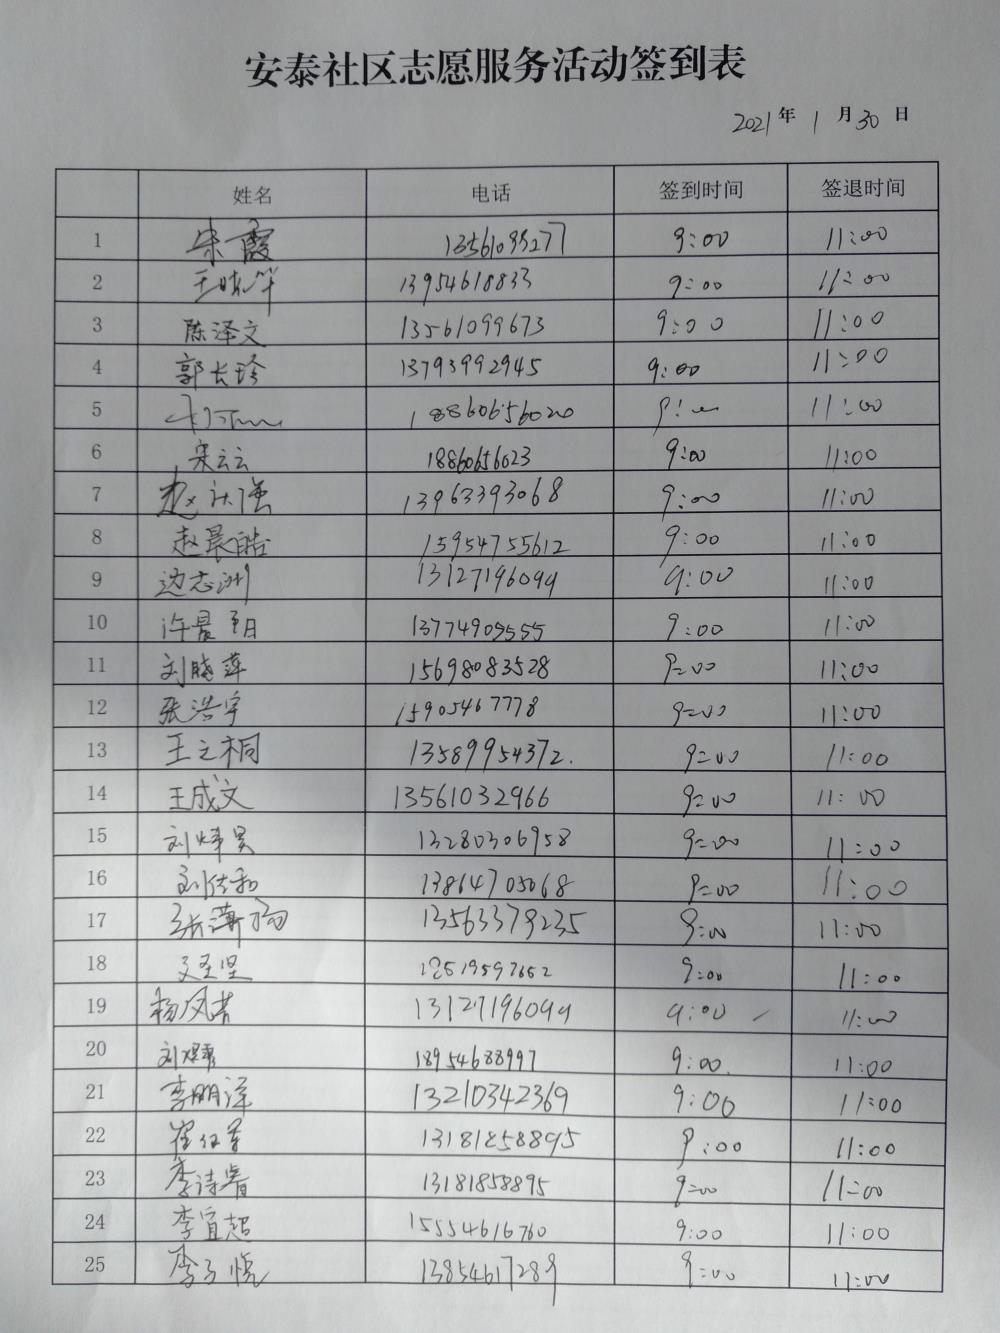 安泰社区志愿服务活动签到表
2021年 1 月30 日
姓名 电话 签到时间 签退时间
1 宋霞 13561099277 9:00 11:00
2 13954618833 9:00 11:00
3 陈泽文 13561099673 9:00 11:00
4 郭长珍 13793992945 9:00 11:00
5 18860656020 11:00
6 宋云云 18860656023 9:00 11:00
7 赵 强 13963393068 9:00 11:00
8 赵晨皓 15954755612 9:00 11:00
9 边志洲 13127196099 9:00 11:00
10 许晨 13774909555 9:00 11:00
11 刘晓萍 15698083528 9:00 11:00
12 张浩宇 15905467778 9:00 11:00
13 王之桐 13589954372. 9:00 11:00
14 王成文 13561032966 9:00 11:00
15 刘 昊 13280306958 9:00 11:00
16 13864705068 9:00 11:00
17 13563379235 9:00 11:00
18 9:00 11:00
19 杨风 13127196099 9:00 11:00
20 刘 18954688997 9:00 11:00
21 李鹏洋 13210342369 9:00 11:00
22 崔红军 13181858895 9:00 11:00
23 李诗睿 13181858895 9:00 11:00
24 李宜超 15554616760 9:00 11:00
25 李子悦 13854617289 9:00 11:00